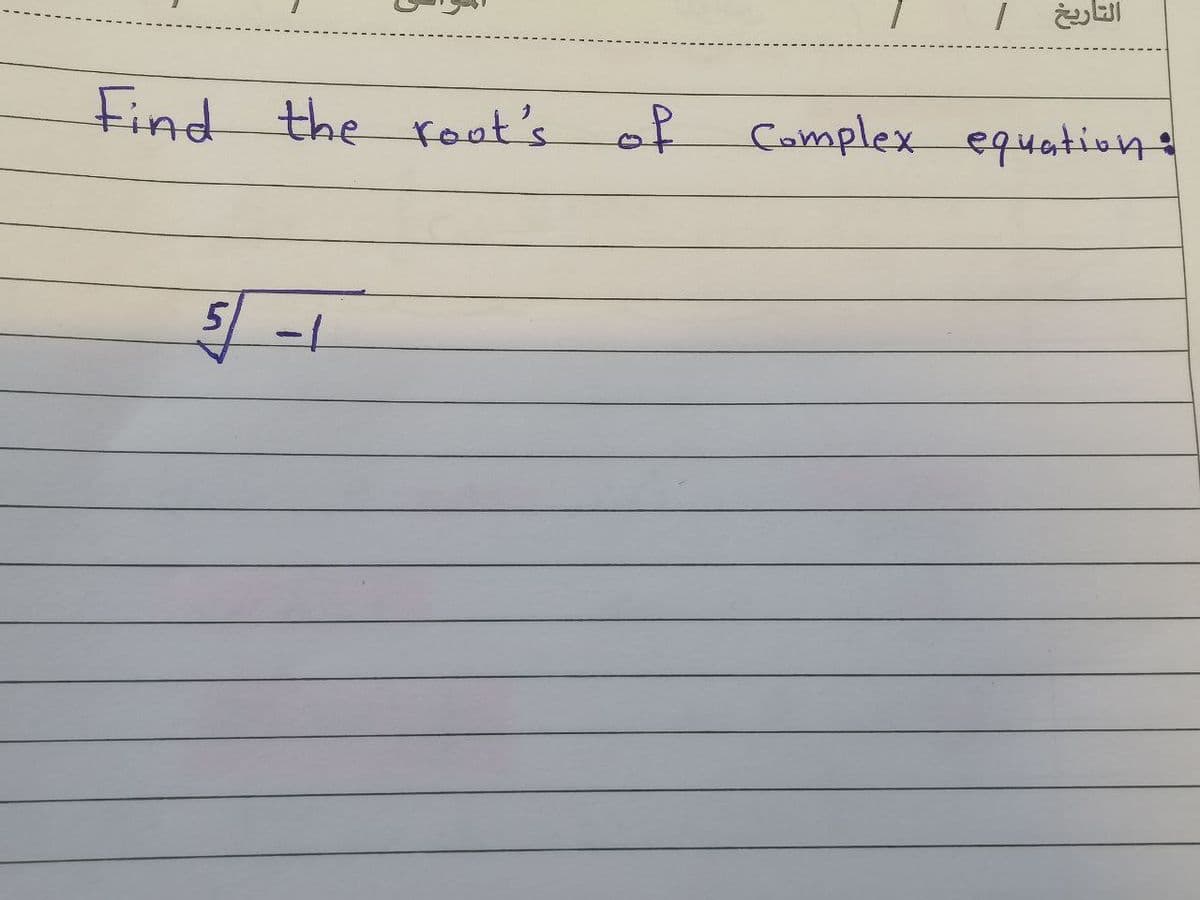 التاريخ / /
Find the root's of Complex equation:
5√-1